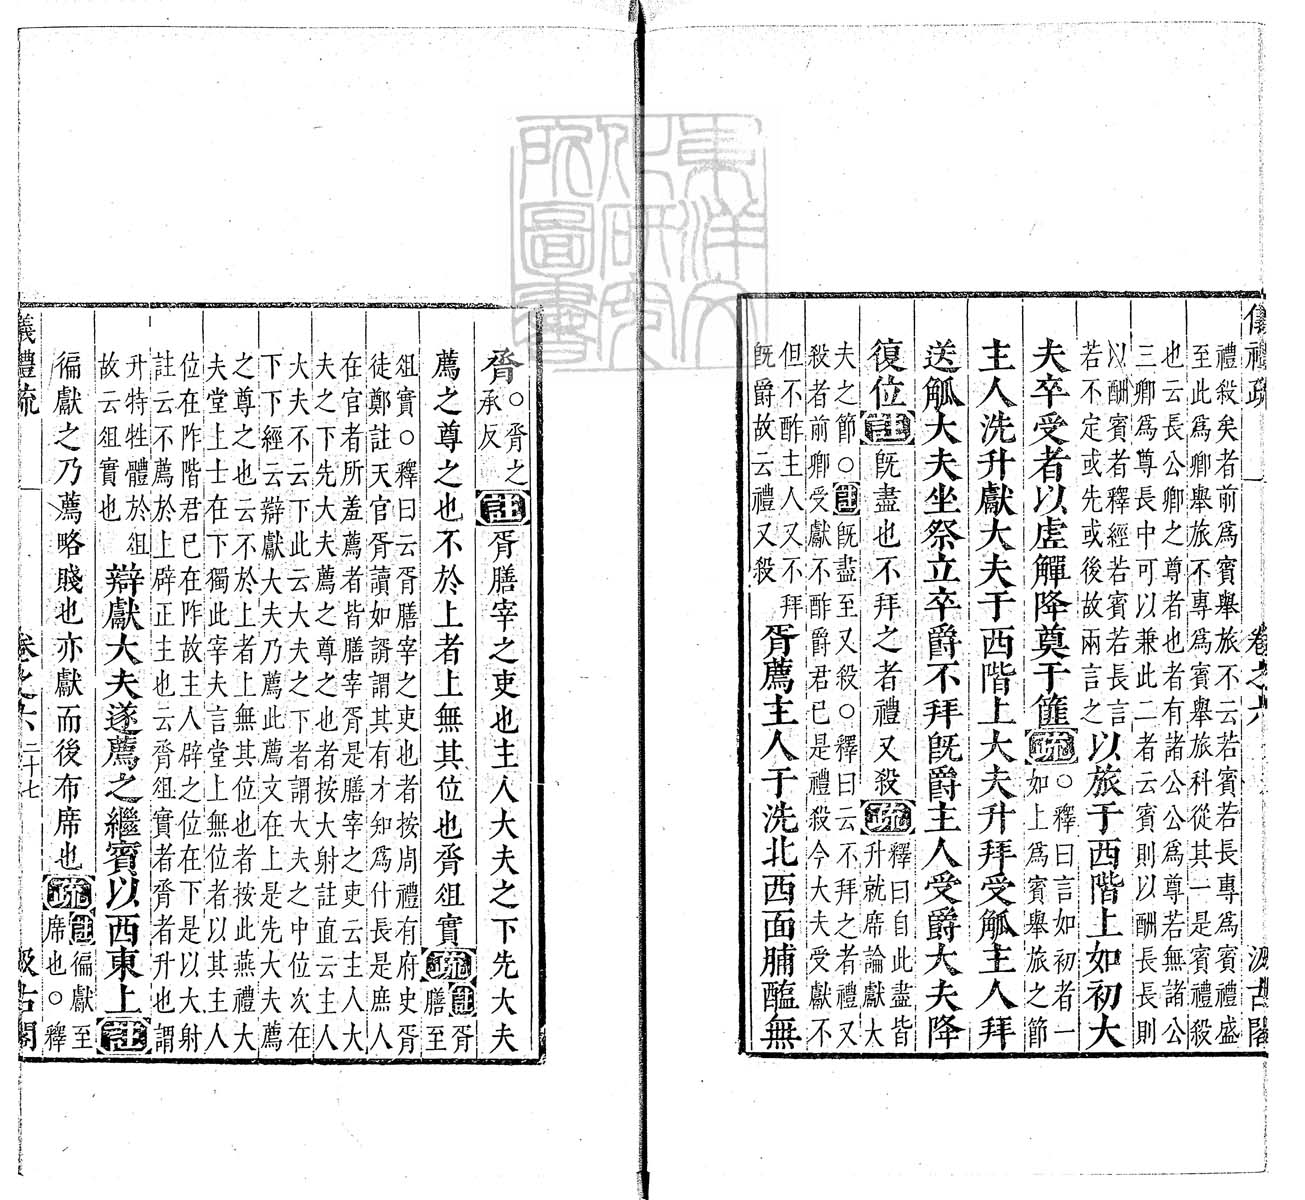 儀禮疏 卷之六 汲古閣
禮殺矣者前爲賓舉旅不云若賓若長專爲賓禮盛
至此爲卿舉旅不專爲賓舉旅科從其一是賓禮殺
也云長公卿之尊者也者有諸公公爲尊若無諸公
三卿爲尊長中可以兼此二者云賓則以酬長長則
以酬賓者釋經若賓若長言
若不定或先或後故兩言之
以旅于西階上如初大
夫卒受者以虛觶降奠于篚
疏
○釋曰言如初者一
如上爲賓舉旅之節
主人洗升獻大夫于西階上大夫升拜受觚主人拜
送觚大夫坐祭立卒爵不拜旣爵主人受爵大夫降
復位
註
旣盡也不拜之者禮又殺
疏
釋曰自此盡皆
升就席論獻大
夫之節○註旣盡至又殺○釋曰云不拜之者禮又
殺者前卿受獻不酢爵君已是禮殺今大夫受獻不
但不酢主人又不拜
旣爵故云禮又殺
胥薦主人于洗北西面脯醢無
脀
○脀之
承反
註
胥膳宰之吏也主人大夫之下先大夫
薦之尊之也不於上者上無其位也脀俎實
疏
註胥
膳至
俎實○釋曰云胥膳宰之吏也者按周禮有府史胥
徒鄭註天官胥讀如諝謂其有才知爲什長是庶人
在官者所羞薦者皆膳宰胥是膳宰之吏云主人大
夫之下先大夫薦之尊之也者按大射註直云主人
大夫不云下此云大夫之下者謂大夫之中位次在
下下經云辯獻大夫乃薦此薦文在上是先大夫薦
之尊之也云不於上者上無其位也者按此燕禮大
夫堂上士在下獨此宰夫言堂上無位者以其主人
位在阼階君已在阼故主人辟之位在下是以大射
註云不薦於上辟正主也云脀俎實者脀者升也謂
升特牲體於俎
故云俎實也
辯獻大夫遂薦之繼賓以西東上
註
徧獻之乃薦略賤也亦獻而後布席也
疏
註徧獻至
席也○釋
儀禮疏 卷之六 二十七 汲古閣